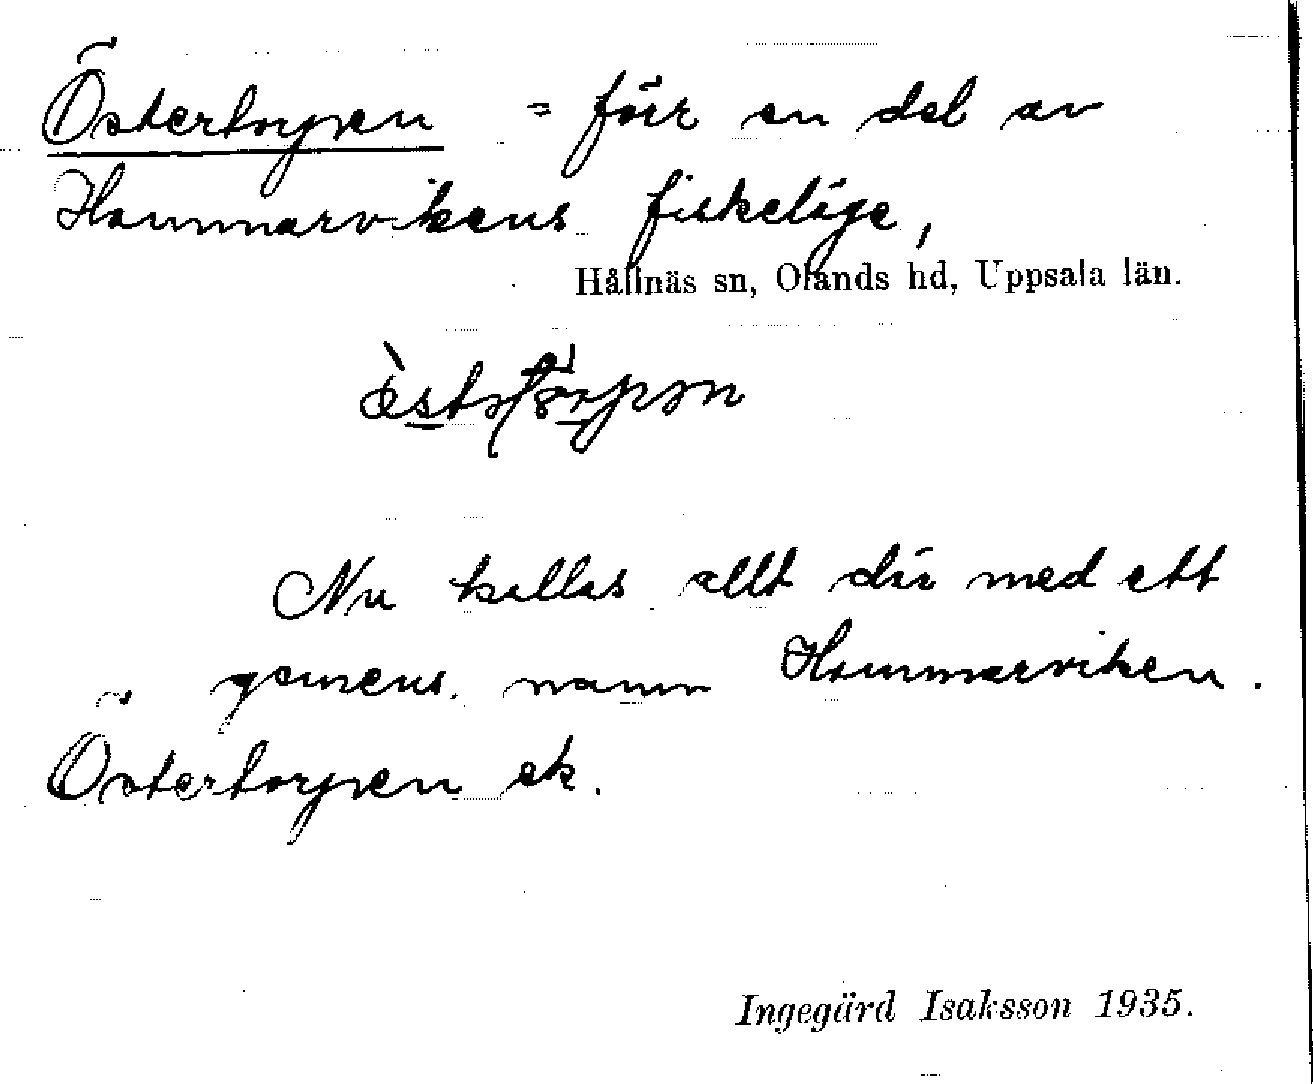 Östertorpen = förr en del av
Hammarvikens fiskeläge,
Hållnäs sn, Olands hd, Uppsala län.
Nu kallas allt där med ett
gemens. namn Hammarviken.
Östertorpen ek.
Ingegärd Isaksson 1935.